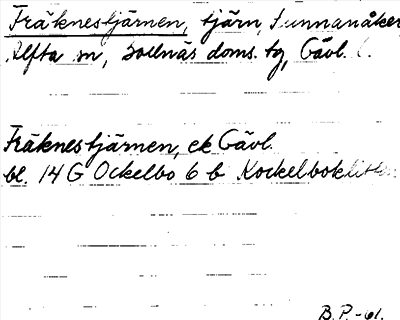 Fräknestjärnen, tjärn, Sunnanåker
Alfta sn, Bollnäs doms. tg, Gävl. l.
Fräknestjärnen, ek Gävl.
bl. 14 G Ockelbo 6 b Kockelboklitten
B.P. -61.